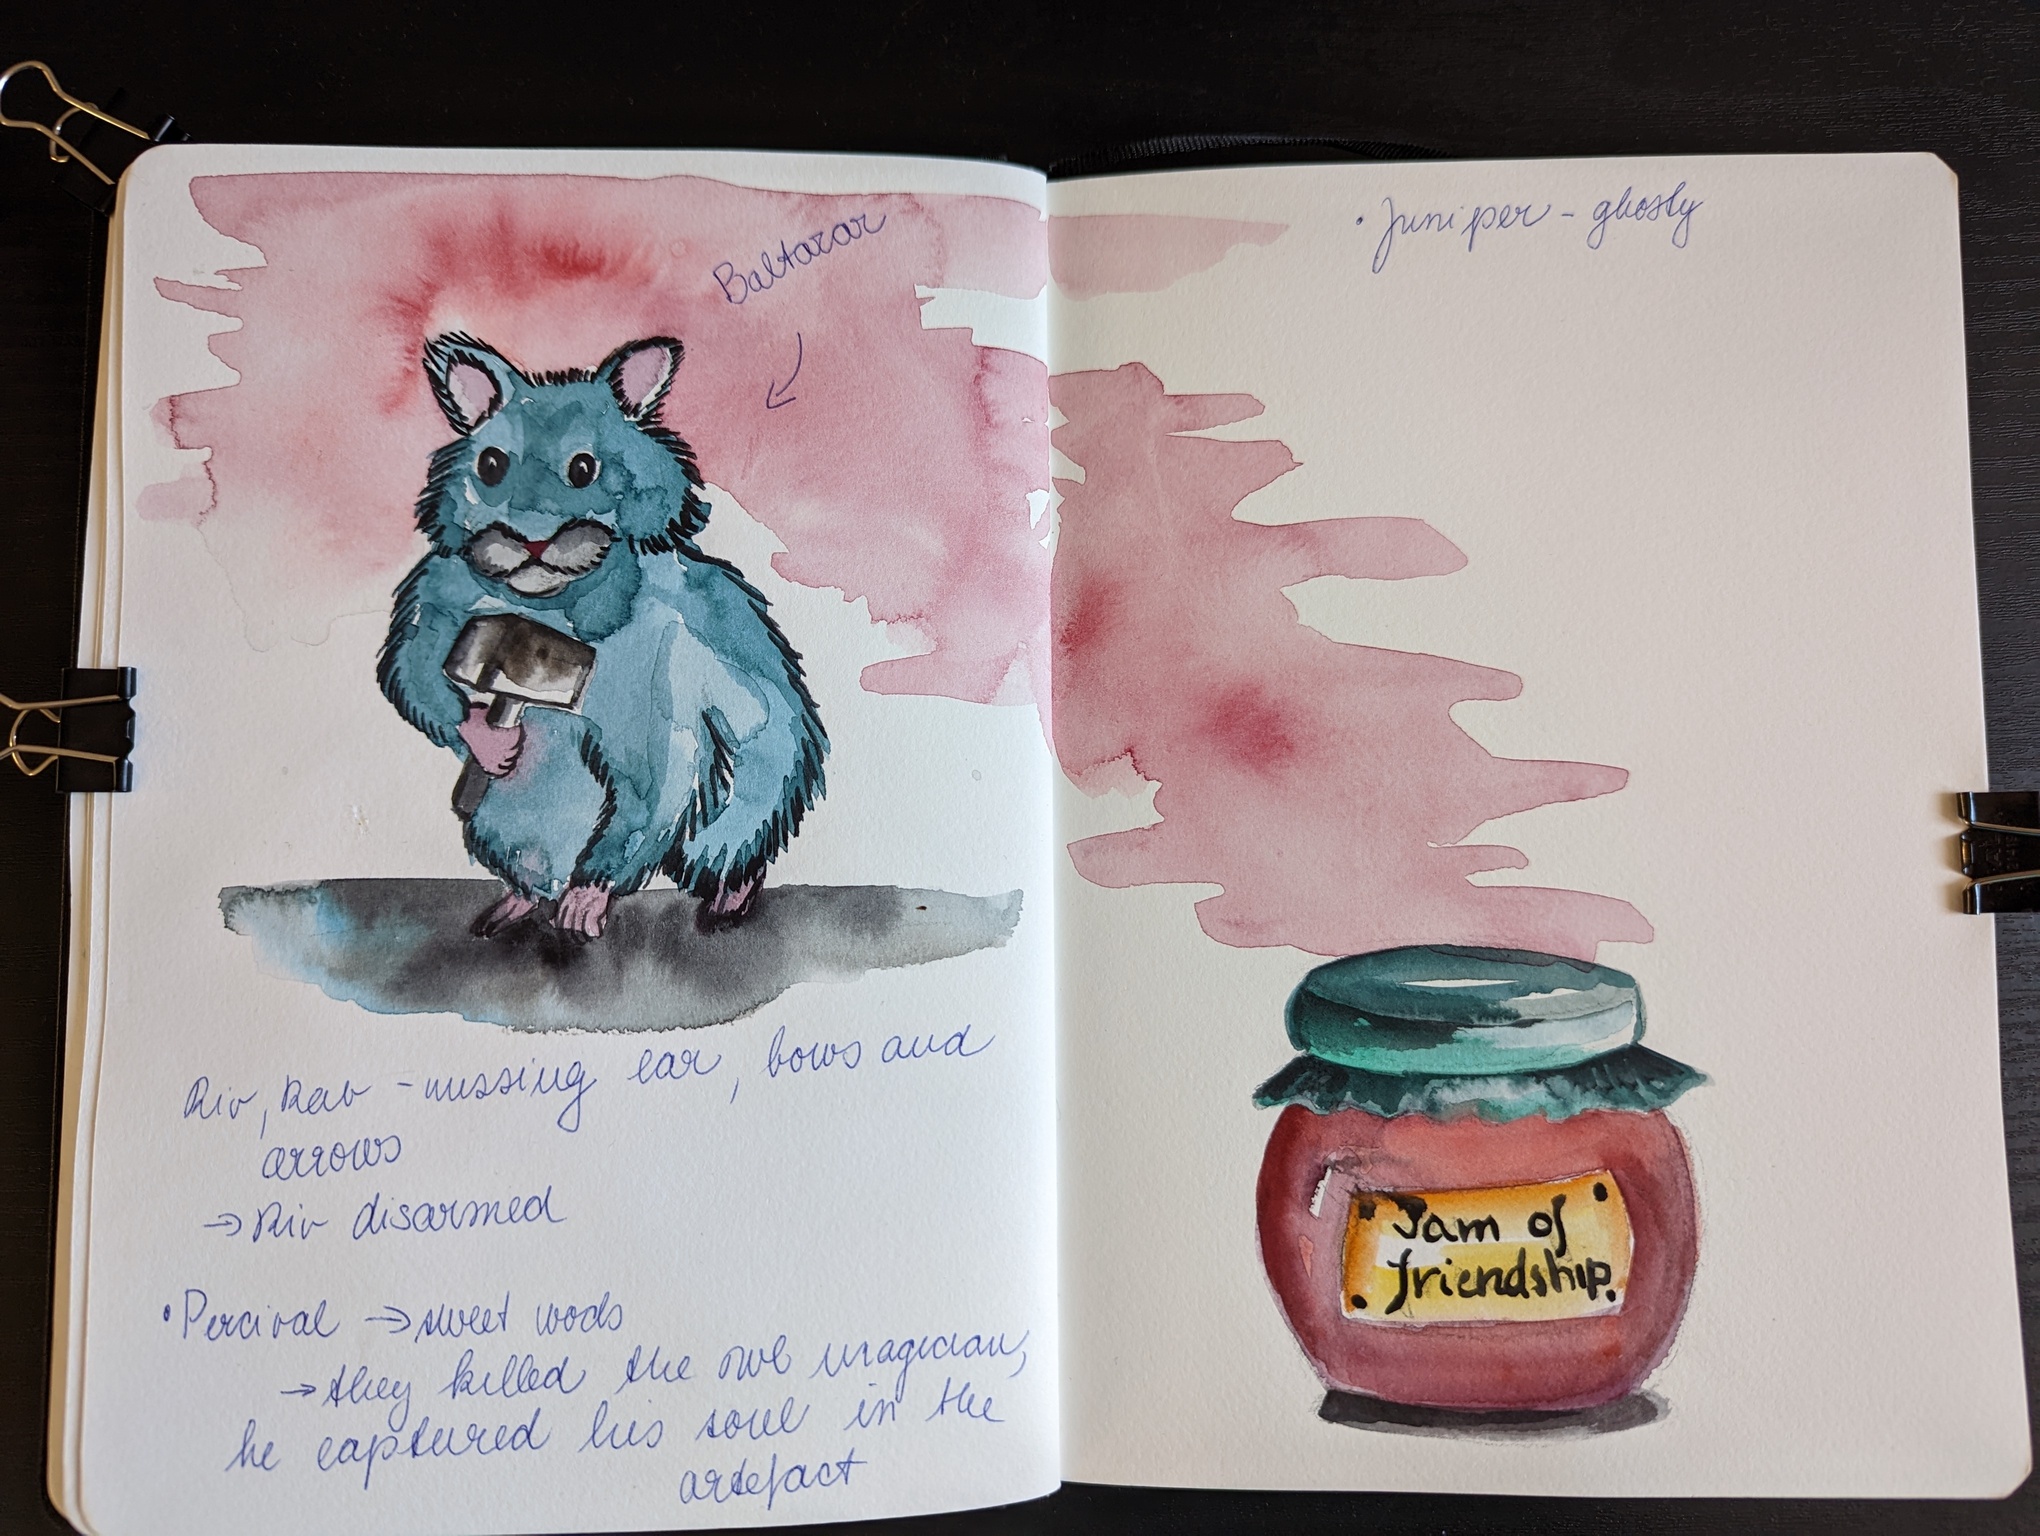 Baltazar
Riv, Rav - missing ear, bows and
arrows
→ Riv disarmed
• Percival → sweet words
→ they killed the owl magician,
he captured his soul in the
artefact
• Juniper - ghosty
Jam of
friendship.